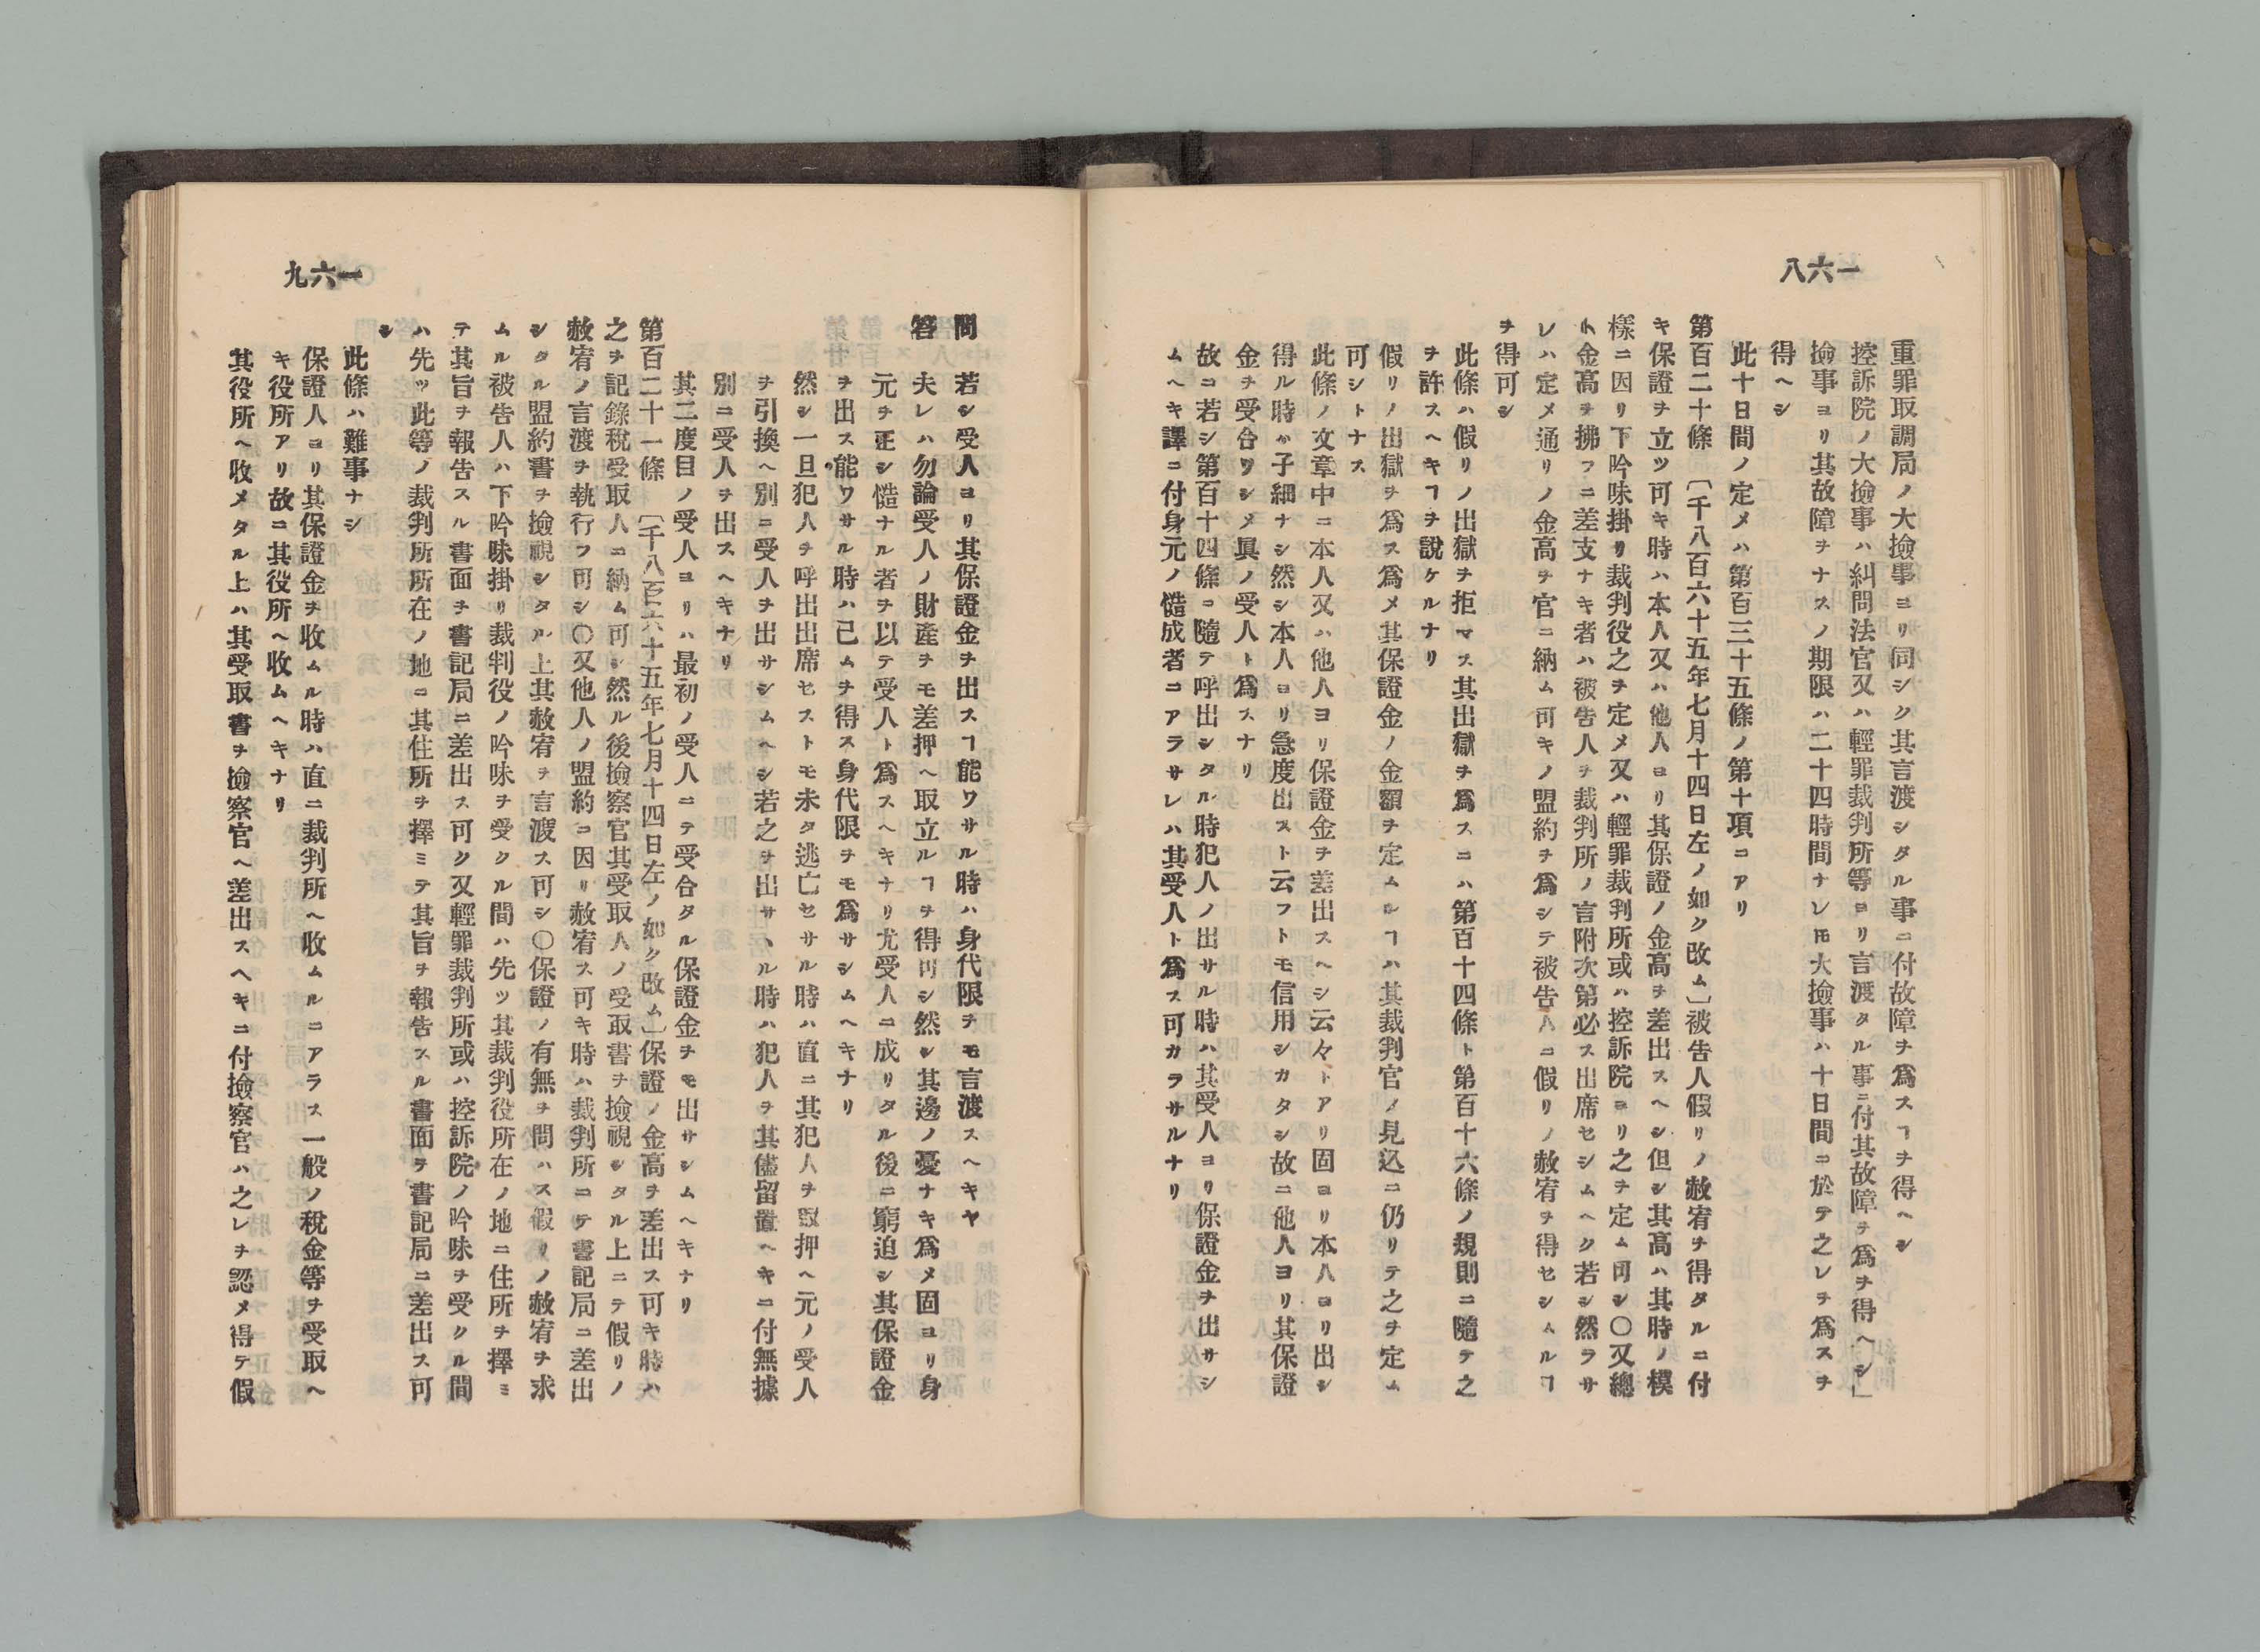 一六八
重罪取調局ノ大撿事ヨリ同シク其言渡シタル事ニ付故障ヲ爲スヿヲ得ヘシ
控訴院ノ大撿事ハ糾問法官又ハ輕罪裁判所等ヨリ言渡タル事ニ付其故障ヲ爲ヲ得ヘシ」
撿事ヨリ其故障ヲナスノ期限ハ二十四時間ナレ𪜈大撿事ハ十日間ニ於テ之レヲ爲スヲ
得ヘシ
此十日間ノ定メハ第百三十五條ノ第十項ニアリ
第百二十條〔千八百六十五年七月十四日左ノ如ク改ム〕被告人假リノ赦宥ヲ得タルニ付
キ保證ヲ立ツ可キ時ハ本人又ハ他人ヨリ其保證ノ金高ヲ差出スヘシ但シ其高ハ其時ノ模
樣ニ因リ下吟味掛リ裁判役之ヲ定メ又ハ輕罪裁判所或ハ控訴院ヨリ之ヲ定ム可シ〇又總
ト金高ヲ拂フニ差支ナキ者ハ被告人ヲ裁判所ノ言附次第必ス出席セシムヘク若シ然ラサ
レハ定メ通リノ金高ヲ官ニ納ム可キノ盟約ヲ爲シテ被告人ニ假リノ赦宥ヲ得セシムルヿ
ヲ得可シ
此條ハ假リノ出獄ヲ拒マス其出獄ヲ爲スニハ第百十四條ト第百十六條ノ規則ニ隨テ之
ヲ許スヘキヿヲ說ケルナリ
假リノ出獄ヲ爲ス爲メ其保證金ノ金額ヲ定ムルヿハ其裁判官ノ見込ニ仍リテ之ヲ定ム
可シトナス
此條ノ文章中ニ本人又ハ他人ヨリ保證金ヲ差出スヘシ云々トアリ固ヨリ本人ヨリ出シ
得ル時ハ子細ナシ然シ本人ヨリ急度出スト云フトモ信用シカタシ故ニ他人ヨリ其保證
金ヲ受合ワシメ眞ノ受人ト爲スナリ
故ニ若シ第百十四條ニ隨テ呼出シタル時犯人ノ出サル時ハ其受人ヨリ保證金ヲ出サシ
ムヘキ譯ニ付身元ノ慥成者ニアラサレハ其受人ト爲ス可カラサルナリ
一六九
問　若シ受人ヨリ其保證金ヲ出スヿ能ワサル時ハ身代限ヲモ言渡スヘキヤ
答　夫レハ勿論受人ノ財產ヲモ差押ヘ取立ルヿヲ得可シ然シ其邊ノ憂ナキ爲メ固ヨリ身
元ヲ正シ慥ナル者ヲ以テ受人ト爲スヘキナリ尤受人ニ成リタル後ニ窮迫シ其保證金
ヲ出ス能ワサル時ハ已ムヲ得ス身代限ヲモ爲サシムヘキナリ
然シ一旦犯人ヲ呼出出席セストモ未タ逃亡セサル時ハ直ニ其犯人ヲ取押ヘ元ノ受人
ヲ引換ヘ別ニ受人ヲ出サシムヘシ若之ヲ出サヽル時ハ犯人ヲ其儘留置ヘキニ付無據
別ニ受人ヲ出スヘキナリ
其二度目ノ受人ヨリハ最初ノ受人ニテ受合タル保證金ヲモ出サシムヘキナリ
第百二十一條〔千八百六十五年七月十四日左ノ如ク改ム〕保證ノ金高ヲ差出ス可キ時ハ
之ヲ記錄稅受取人ニ納ム可シ然ル後撿察官其受取人ノ受取書ヲ撿視シタル上ニテ假リノ
赦宥ノ言渡ヲ執行フ可シ〇又他人ノ盟約ニ因リ赦宥ス可キ時ハ裁判所ニテ書記局ニ差出
シタル盟約書ヲ撿視シタル上其赦宥ヲ言渡ス可シ〇保證ノ有無ヲ問ハス假リノ赦宥ヲ求
ムル被告人ハ下吟味掛リ裁判役ノ吟味ヲ受クル間ハ先ツ其裁判役所在ノ地ニ住所ヲ擇ミ
テ其旨ヲ報告スル書面ヲ書記局ニ差出ス可ク又輕罪裁判所或ハ控訴院ノ吟味ヲ受クル間
ハ先ツ此等ノ裁判所所在ノ地ニ其住所ヲ擇ミテ其旨ヲ報告スル書面ヲ書記局ニ差出ス可
シ
此條ハ難事ナシ
保證人ヨリ其保證金ヲ收ムル時ハ直ニ裁判所ヘ收ムルニアラス一般ノ稅金等ヲ受取ヘ
キ役所アリ故ニ其役所ヘ收ムヘキナリ
其役所ヘ收メタル上ハ其受取書ヲ撿察官ヘ差出スヘキニ付撿察官ハ之レヲ認メ得テ假